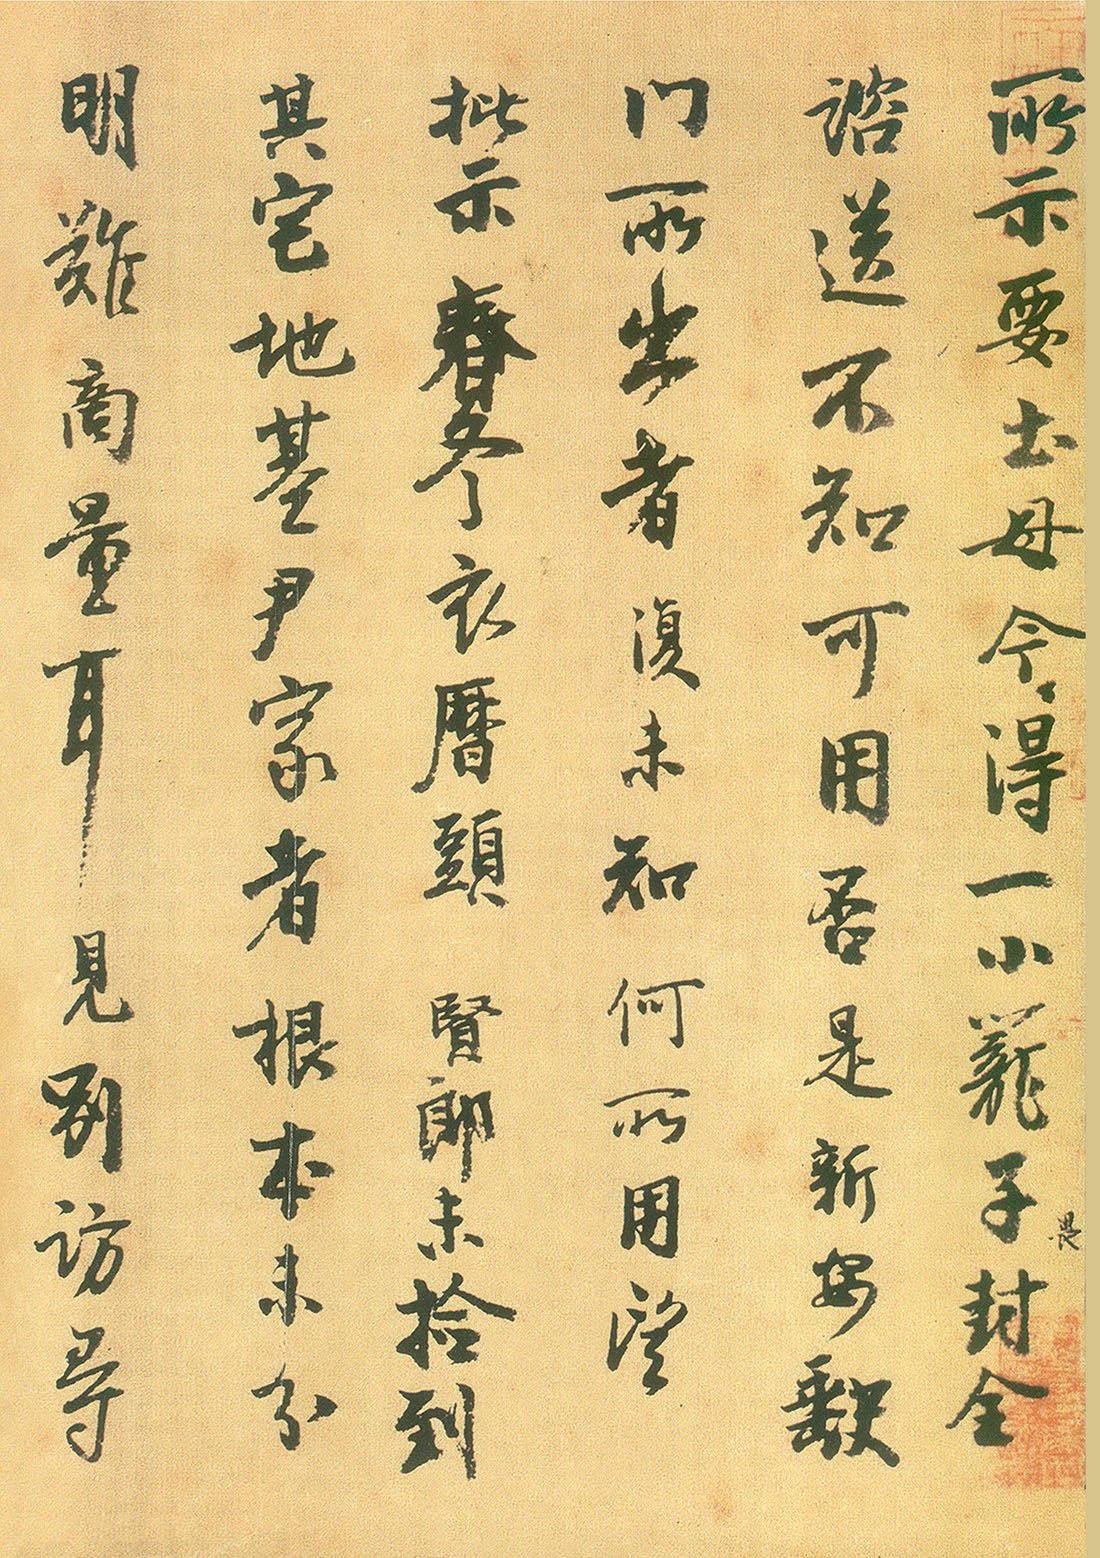 所示要土母今得一小籠子封全
畏
諮送不知可用否是新安缺
門所出者復未知何所用望
批示春冬衣曆頭賢郎未拾到
其宅地基尹家者根本未分
明難商量耳見別訪尋